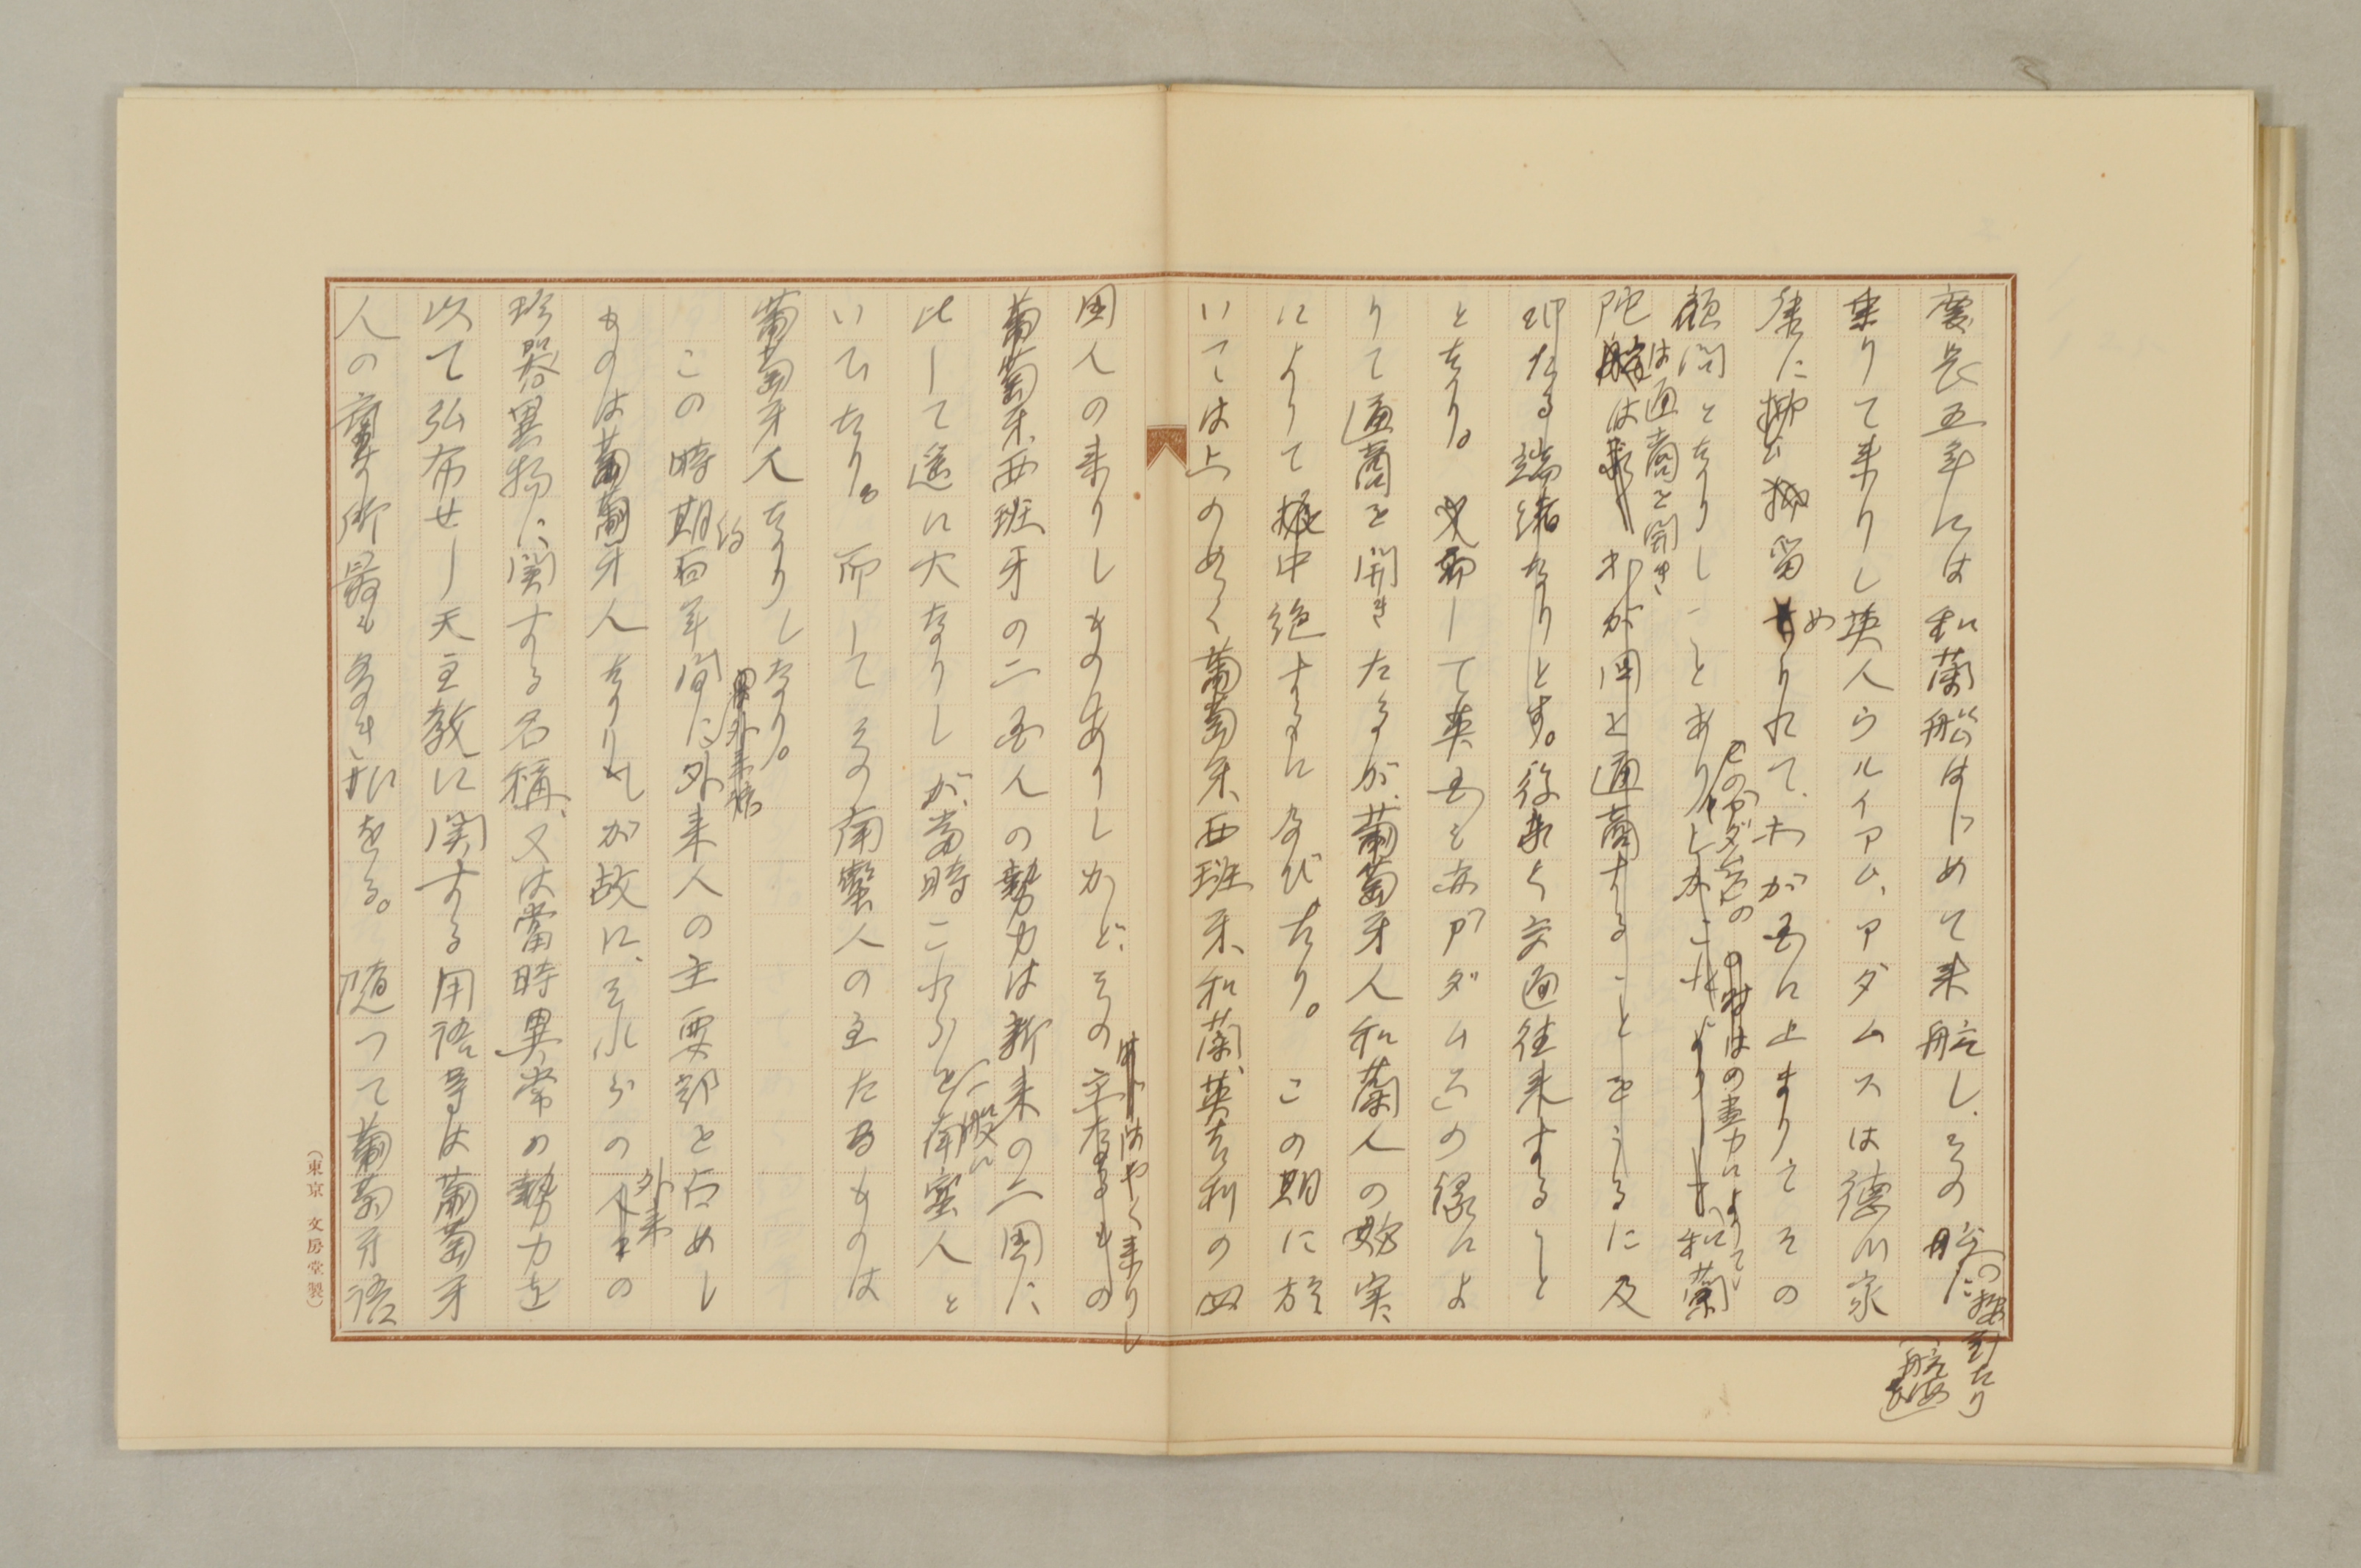 慶長五年には和蘭船はじめて来航し、その船に
の按針たり
(航海長)
乗りて来りし英人ウルイアム、アダムスは徳川家
康に抑留められて、わが国に止まりてその
顧問となりしことあり
のアダムスの
の盡力によりて、和蘭
は通商を開き
陀船は わが国と通商することをうるに及
たる端緒なりとす。後 交通往来すること
となり。 而して英国も亦アダムスの縁によ
りて通商を開きたるが、葡萄牙人和蘭人の妨害
によりて中絶するに及びたり。 この期に於
いては上のめく葡萄牙、西班牙、和蘭、英吉利の四
国人の来りしものありしかど、その主なるもの
はやく来りし
葡萄牙、西班牙の二国人の勢力は新来の二国に
比して遥に大なりしが、当時これらを南蛮人と
一般に
いひたり。而してその南蠻人の主たるものは
葡萄牙人なりしなり。
この時期百年間に外来人の主要部を占めし
約
ものは葡萄牙人なりしが故に、それらの人の
外来
珍器異物に関する名稱、又は當時異常の勢力を
以て弘布せし天主教に関する用語等は葡萄牙
人の齎す所最も多きに在る。 随つて葡萄牙語
(東京 文房堂製)